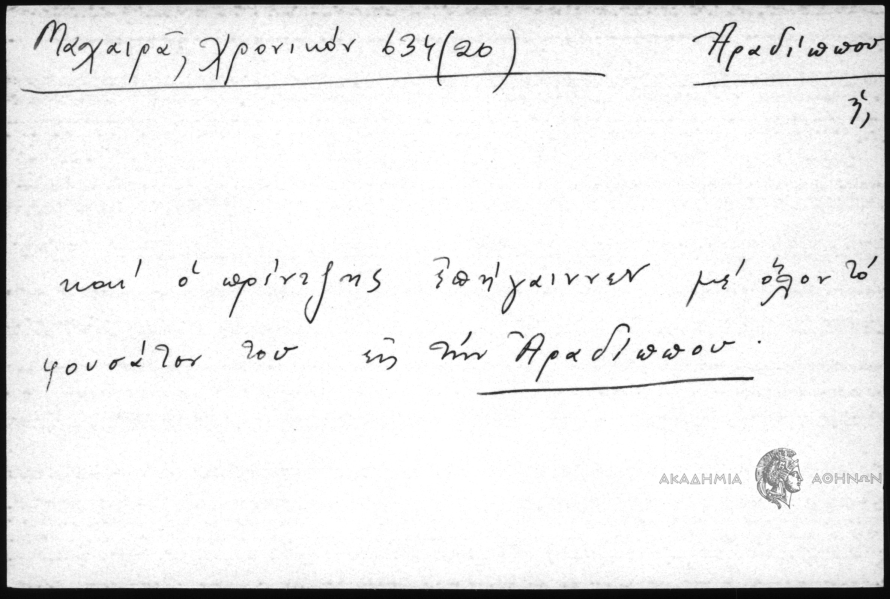 Μαχαιρᾶ, Χρονικόν 634(20) Ἀραδίππου
ἡ,
καί ὁ πρίντζης ἐπήγαιννεν μέ ὅλον τό
φουσάτον του εἰς τήν Ἀραδίππου.
ΑΚΑΔΗΜΙΑ ΑΘΗΝΩΝ